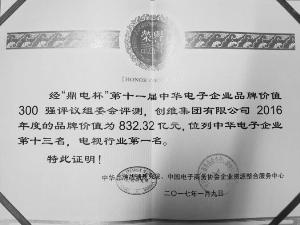 经“鼎电杯”第十一届中华电子企业品牌价值
300 强评议组委会评测，创维集团有限公司 2016
年度的品牌价值为 832.32 亿元，位列中华电子企业
第十三名，电视行业第一名。
特此证明！
中国电子商务协会企业资源整合服务中心
二〇一七年一月九日